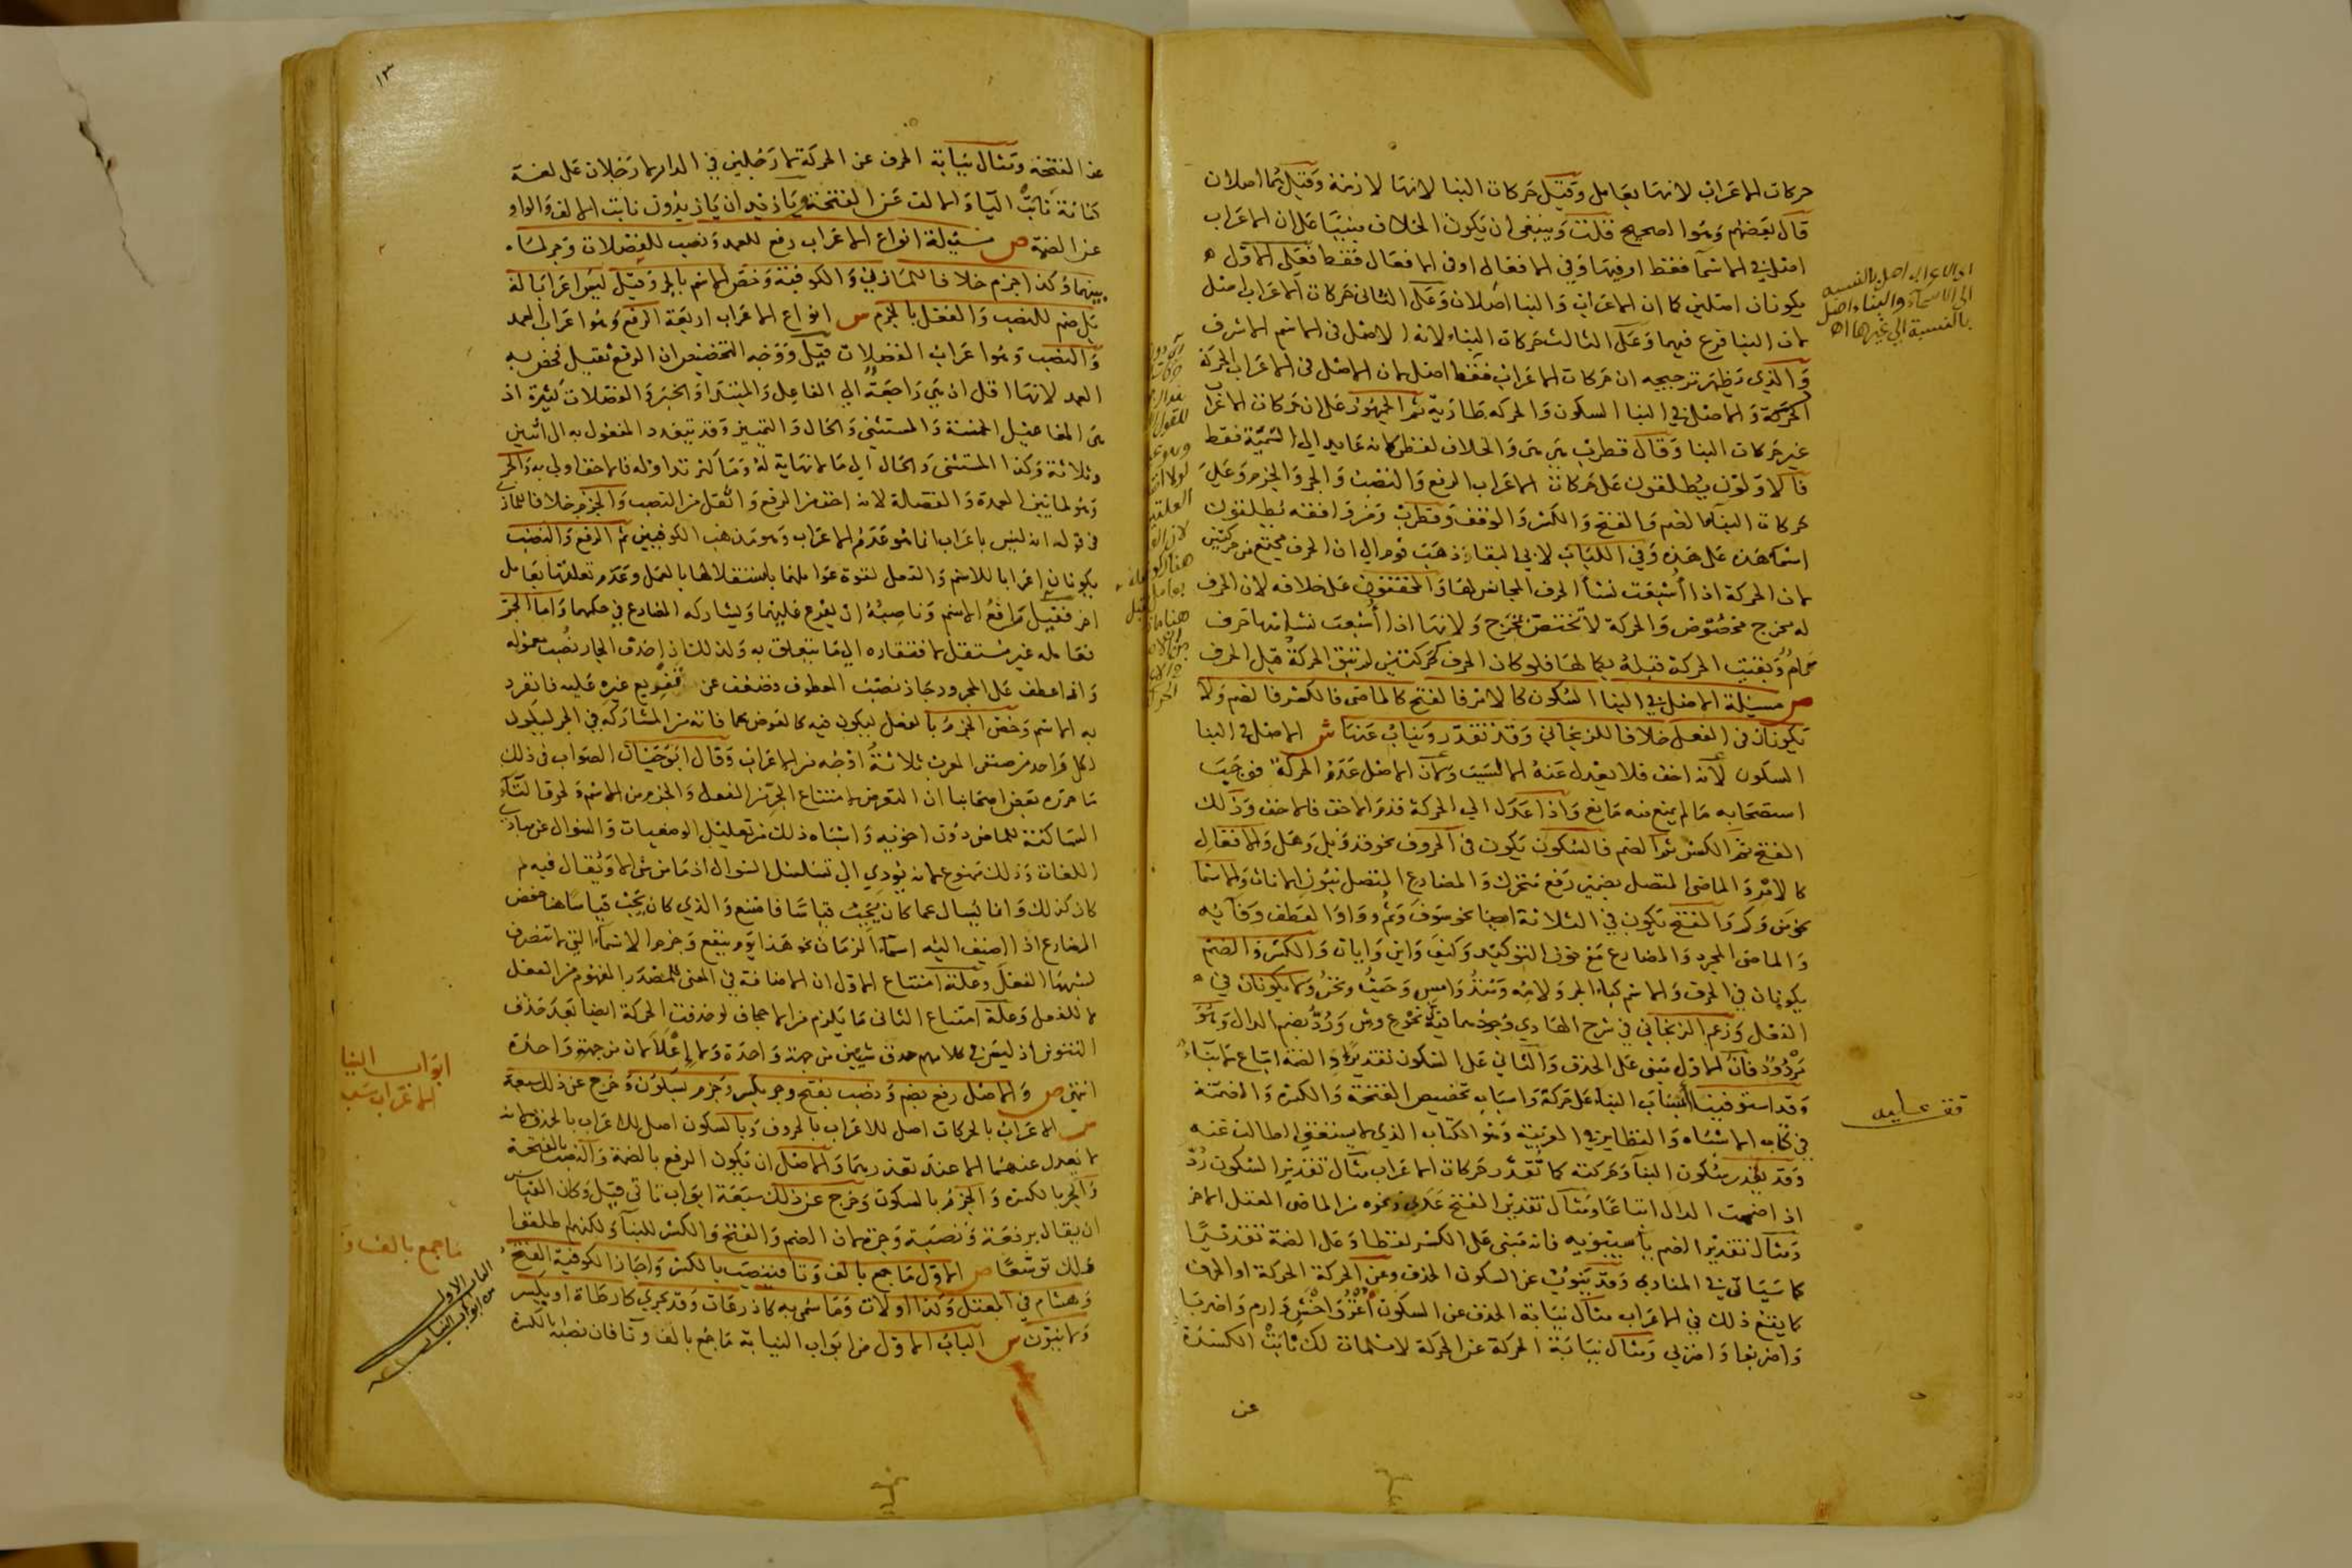 حركات الاعراب لانها بعامل وقيل حركات البنا لانها لازمة وقيل هما اصلان
قال بعضهم وهو الصحيح قلت وينبغى ان يكون الخلاف مبنيا على ان الاعراب
اصل في الاسما فقط او فيها وفي الافعال او فى الافعال فقط فعلى الاول
يكونان اصلين كما ان الاعراب والبنا اصلان وعلى الثانى حركات الاعراب اصل
لان البنا فرع فيهما وعلى الثالث حركات البناء لانه الاصل فى الاسم الاشرف
والذي يظهر ترجيحه ان حركات الاعراب فقط اصل لان الاصل فى الاعراب الحركة
الحركة والاصل في البنا السكون والحركة طارية ثم الجمهور على ان حركات الاعراب
غير حركات البنا وقال قطرب هى هى والخلاف لفظى لانه عايد الي التسمية فقط
فالاولون يطلقون على حركات الاعراب الرفع والنصب والجر والجزم وعلى
حركات البنا الضم والفتح والكسر والوقف وقطرب ومن وافقه يطلقون
اسما هذه على هذه وفي اللباب لابي البقا ذهب قوم الي ان الحرف مجتمع من حركتين
لان الحركة اذا اشبعت نشأ الحرف المجانس لها والمحققون على خلافه لان الحرف
له مخرج مخصوص والحركة لا تختص بمخرج ولانها اذا أشبعت نشا منها حرف
تام وبقيت الحركة قبله بكمالها فلو كان الحرف حركتين لم تبق الحركة قبل الحرف
ص مسئلة الاصل في البنا السكون كالامر فالفتح كالماضى فالكسر فالضم ولا
يكونان فى الفعل خلافا للزنجاني وقد تقدر وينوب عنها ش الاصل فى البنا
السكون لانه اخف فلا يعدل عنه الا لسبب ولان الاصل عدم الحركة فوجب
استصحابه ما لم يمنع منه مانع واذا عدل الي الحركة قدم الاخف فالاخف وذلك
الفتح ثم الكسر ثم الضم فالسكون يكون فى الحروف نحو قد وبل وهل والافعال
كالامر والماضى المتصل بضمير رفع متحرك والمضارع المتصل بنون الاناث والاسما
نحو من وكم والفتح يكون في الثلاثة ايضا نحو سوف وثم وواو العطف وفائه
والماضى المجرد والمضارع مع نون التوكيد وكيف واين وايان والكسر والضم
يكونان في الحرف والاسم كباء الجر ولامه ومنذ وامس وحيث ونحن ولا يكونان في
الفعل وزعم الزنجاني في شرح الهادي وجودهما فيه نحو ع وش ورد بضم الدال وهو
مردود فان الاول مبنى على الحذف والثانى على السكون تقديرا والضمة اتباع لا بناء
وقد استوفينا أسباب البناء على حركة واسباب تخصيص الفتحة والكسرة والضمة
في كتاب الاشباه والنظاير في العربية وهو الكتاب الذي لا يستغنى الطالب عنه
وقد تقدر سكون البنا وحركته كما تقدر حركات الاعراب مثال تقدير السكون رد
اذا ضمت الدال اتباعا ومثال تقدير الفتح عدى ونحوه من الماضى المعتل الاخر
ومثال تقدير الضم يا سيبويه فانه مبنى على الكسر لفظا وعلى الضمة تقديرا
كما سياتى في المنادى وقد ينوب عن السكون الحذف وعن الحركة الحركة او الحرف
كما يقع ذلك في الاعراب مثال نيابة الحذف عن السكون اغز واخش وارم واضربا
واضربوا واضربي ومثال نيابة الحركة عن الحركة لا مسلمات لك نابت الكسرة
عن
اي الاعراب اصل بالنسبه
الى الاسماء والبناء اصل
بالنسبة الي غيرها اه
قف عليه
١٣
عن الفتحة ومثال نيابة الحرف عن الحركة لا رجلين في الدار لا رجلان على لغة
كنانة نابت اليا والالف عن الفتحة ويا زيدان يا زيدون نابت الالف والواو
عن الضمة ص مسئلة انواع الاعراب رفع للعمد ونصب للفضلات وجر لما
بينهما وكذا جزم خلافا للمازني والكوفية وخص الاسم بالجر وقيل ليسوا اعرابا له
بل ضم للنصب والفعل بالجزم ش انواع الاعراب اربعة الرفع وهو اعراب العمد
والنصب وهو اعراب الفضلات قيل ووجه التخصيص ان الرفع ثقيل فخص به
العمد لانها اقل اذ هى راجعة الي الفاعل والمبتدا والخبر والفضلات كثيرة اذ
هى المفاعيل الخمسة والمستثنى والحال والتمييز وقد يتعدد المفعول به الى اثنين
وثلاثة وكذا المستثنى والحال الي ما لا نهاية له وما كثر تداوله فالاخف اولى به والجر
وهو لما بين العمدة والفضلة لانه اخف من الرفع واثقل من النصب والجزم خلافا للمازني
فى قوله انه ليس باعراب انما هو عدم الاعراب وهو مذهب الكوفيين ثم الرفع والنصب
يكونان اعرابا للاسم والفعل لقوة عواملهما باستقلالها بالعمل وعدم تعلقها بعامل
اخر فقبل رافع الاسم وناصبه ان يفرع عليهما ويشاركه المضارع في حكمهما واما الجر
فعامله غير مستقل لافتقاره الي ما يتعلق به ولذلك اذا حذف الجار نصب معموله
واذا عطف على المجرور جاز نصب المعطوف فضعف عن تفريع غيره عليه فانفرد
به الاسم وخص الجزم بالفعل ليكون فيه كالعوض مما فاته من المشاركة في الجر ليكون
لكل واحد من صنفى المعرب ثلاثة اوجه من الاعراب وقال ابو حيان الصواب فى ذلك
ما حرره بعض اصحابنا ان التعرض لامتناع الجر من الفعل والجزم من الاسم ولحوق التاء
الساكنة للماضى دون اخويه واشباه ذلك من تعليل الوضعيات والسوال عن مبادي
اللغات وذلك ممنوع لانه يؤدي الى تسلسل السوال اذ ما من شى الا ويقال فيه لم
كان كذلك وانما يسال عما كان يجب قياسا فامتنع والذي كان يجب قياسا هنا خفض
المضارع اذا اضيف اليه اسماء الزمان نحو هذا يوم ينفع وجزم الاسماء التى لا تنصرف
لشبهها الفعل وعلة امتناع الاول ان الاضافة في المعنى للمصدر المفهوم من الفعل
لا للفعل وعلة امتناع الثانى ما يلزم من الاجحاف لو حذفت الحركة ايضا بعد حذف
التنوين اذ ليس في كلامهم حذف شيئين من جهة واحدة ولا إعلالان من جهة واحدة
انتهى ص والاصل رفع بضم ونصب بفتح وجر بكسر وجزم بسكون وخرج عن ذلك سبعة
ش الاعراب بالحركات اصل للاعراب بالحروف وبالسكون اصل للاعراب بالحذف لانه
لا يعدل عنهما الا عند تعذرهما والاصل ان يكون الرفع بالضمة والنصب بالفتحة
والجر بالكسرة والجزم بالسكون وخرج عن ذلك سبعة ابواب تاتى قيل وكان القياس
ان يقال برفعة ونصبة وجرة لان الضم والفتح والكسر للبنا ولكنهم اطلقوا
ذلك توسعا ص الاول ما جمع بالف وتا فينصب بالكسرة واجاز الكوفية الفتح
وهشام في المعتل وكذا اولات وما سمى به كاذرعات وقد يجري كارطاة او يكسر
ولا ينون ش الباب الاول من ابواب النيابة ما جمع بالف وتا فان نصبه بالكسرة
ابواب النيا
الاعراب
ما جمع بالف و
الباب الاول
من ابواب النيابه